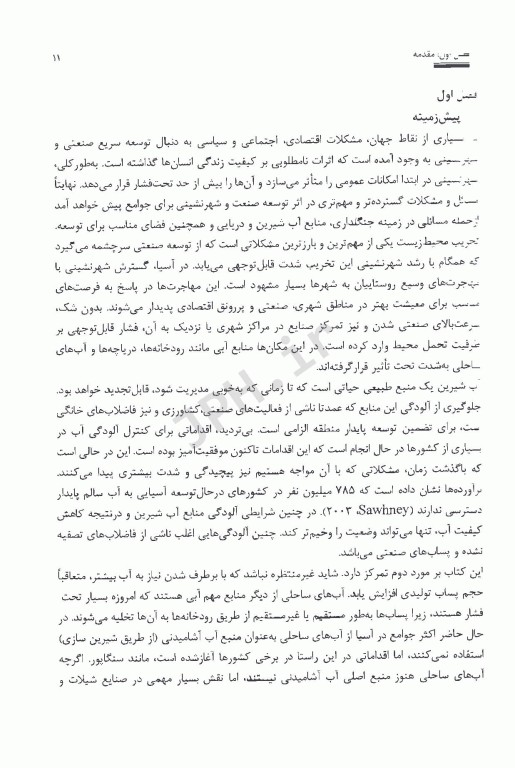 فصل اول: مقدمه
۱۱
فصل اول
پیش‌زمینه
بسیاری از نقاط جهان، مشکلات اقتصادی، اجتماعی و سیاسی به دنبال توسعه سریع صنعتی و
شهرنشینی به وجود آمده است که اثرات نامطلوبی بر کیفیت زندگی انسان‌ها گذاشته است. به‌طورکلی،
شهرنشینی در ابتدا امکانات عمومی را متأثر می‌سازد و آن‌ها را بیش از حد تحت‌فشار قرار می‌دهد. نهایتاً
مسائل و مشکلات گسترده‌تر و مهم‌تری در اثر توسعه صنعت و شهرنشینی برای جوامع پیش خواهد آمد
ازجمله مسائلی در زمینه جنگلداری، منابع آب شیرین و دریایی و همچنین فضای مناسب برای توسعه.
تخریب محیط‌زیست یکی از مهم‌ترین و بارزترین مشکلاتی است که از توسعه صنعتی سرچشمه می‌گیرد
که همگام با رشد شهرنشینی این تخریب شدت قابل‌توجهی می‌یابد. در آسیا، گسترش شهرنشینی با
مهاجرت‌های وسیع روستاییان به شهرها بسیار مشهود است. این مهاجرت‌ها در پاسخ به فرصت‌های
مناسب برای معیشت بهتر در مناطق شهری، صنعتی و پررونق اقتصادی پدیدار می‌شوند. بدون شک،
سرعت‌بالای صنعتی شدن و نیز تمرکز صنایع در مراکز شهری یا نزدیک به آن، فشار قابل‌توجهی بر
ظرفیت تحمل محیط وارد کرده است. در این مکان‌ها منابع آبی مانند رودخانه‌ها، دریاچه‌ها و آب‌های
ساحلی به‌شدت تحت تأثیر قرارگرفته‌اند.
آب شیرین یک منبع طبیعی حیاتی است که تا زمانی که به‌خوبی مدیریت شود، قابل‌تجدید خواهد بود.
جلوگیری از آلودگی این منابع که عمدتا ناشی از فعالیت‌های صنعتی،کشاورزی و نیز فاضلاب‌های خانگی
ست، برای تضمین توسعه پایدار منطقه الزامی است. بی‌تردید، اقداماتی برای کنترل آلودگی آب در
بسیاری از کشورها در حال انجام است که این اقدامات تاکنون موفقیت‌آمیز بوده است. این در حالی است
که باگذشت زمان، مشکلاتی که با آن مواجه هستیم نیز پیچیدگی و شدت بیشتری پیدا می‌کنند.
برآوردها نشان داده است که ۷۸۵ میلیون نفر در کشورهای درحال‌توسعه آسیایی به آب سالم پایدار
دسترسی ندارند (Sawhney، ۲۰۰۳). در چنین شرایطی آلودگی منابع آب شیرین و درنتیجه کاهش
کیفیت آب، تنها می‌تواند وضعیت را وخیم‌تر کند. چنین آلودگی‌هایی اغلب ناشی از فاضلاب‌های تصفیه
نشده و پساب‌های صنعتی می‌باشد.
این کتاب بر مورد دوم تمرکز دارد. شاید غیرمنتظره نباشد که با برطرف شدن نیاز به آب بیشتر، متعاقباً
حجم پساب تولیدی افزایش یابد. آب‌های ساحلی از دیگر منابع مهم آبی هستند که امروزه بسیار تحت
فشار هستند، زیرا پساب‌ها به‌طور مستقیم یا غیرمستقیم از طریق رودخانه‌ها به آن‌ها تخلیه می‌شوند. در
حال حاضر اکثر جوامع در آسیا از آب‌های ساحلی به‌عنوان منبع آب آشامیدنی (از طریق شیرین سازی)
استفاده نمی‌کنند، اما اقداماتی در این راستا در برخی کشورها آغازشده است، مانند سنگاپور. اگرچه
آب‌های ساحلی هنوز منبع اصلی آب آشامیدنی نیستند، اما نقش بسیار مهمی در صنایع شیلات و